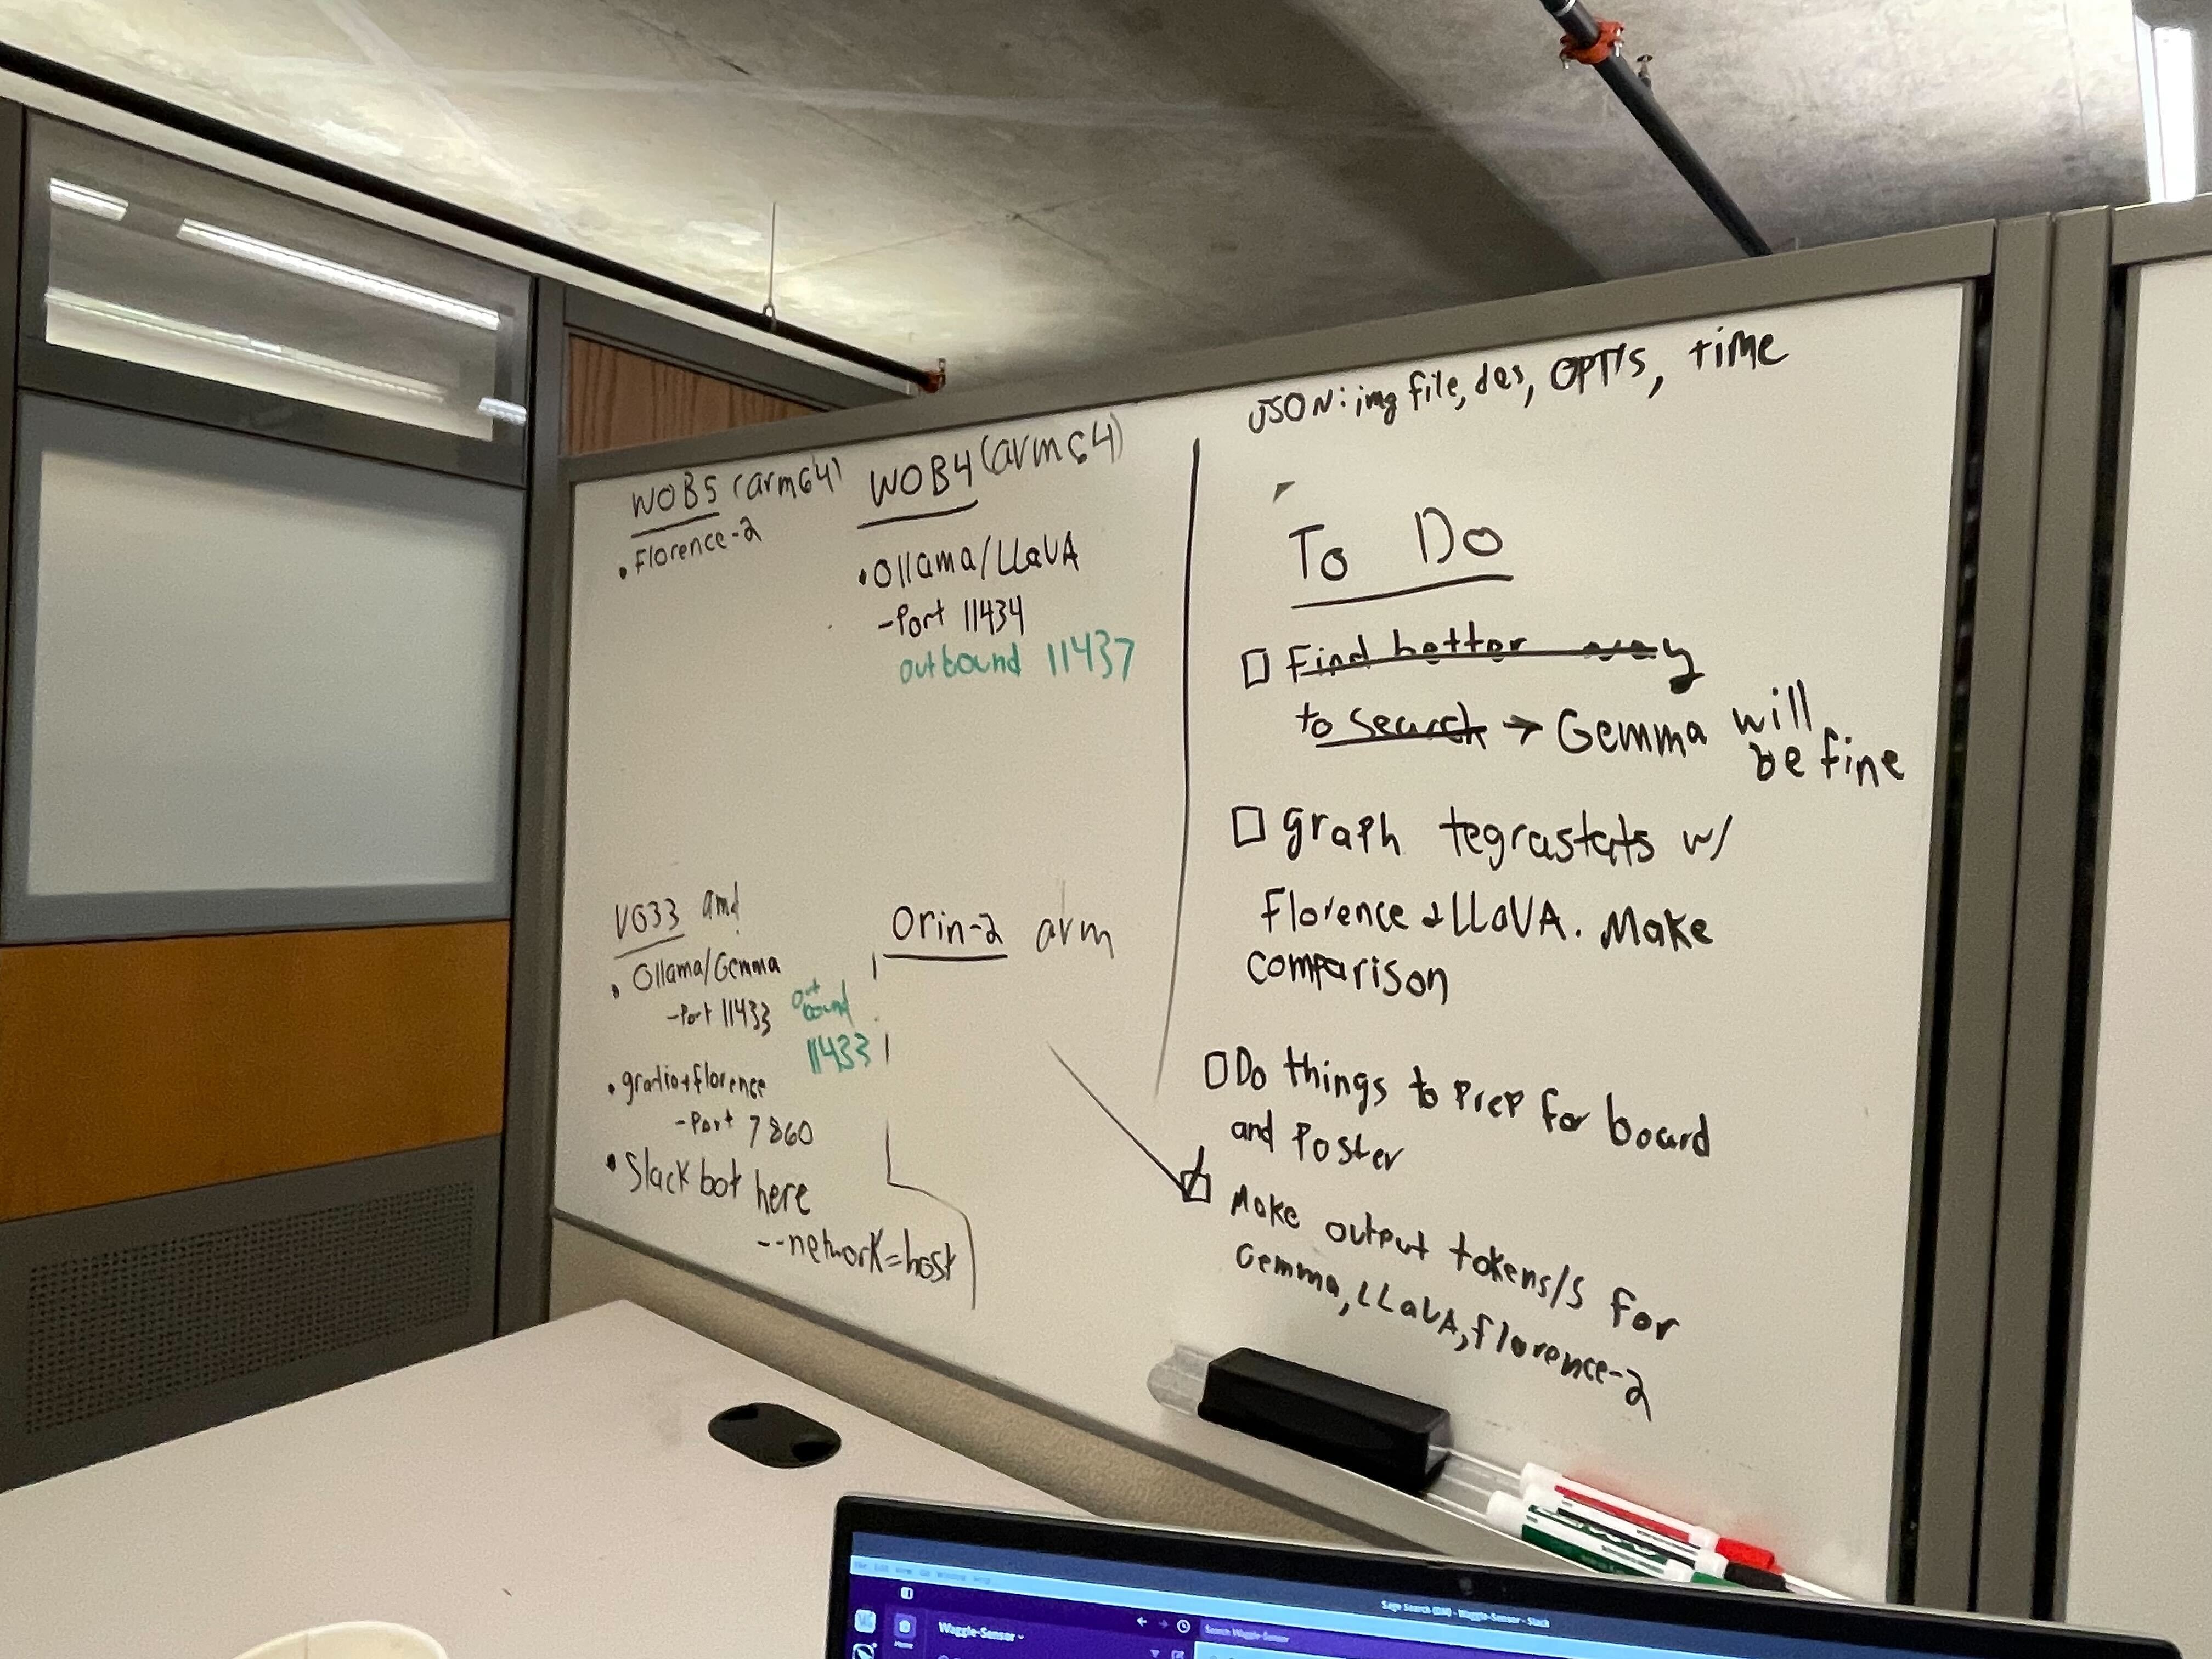 JSON: img file, des, OPT's, time
WOB5 (arm64)
• Florence-2
WOB4 (arm64)
• Ollama/LLaVA
- Port 11434
outbound 11437
VG33 amd
• Ollama/Gemma
- Port 11433
out bound
11433
• gradio+florence
- Port 7860
• Slack bot here
--network=host
Orin-2 arm
To Do
Find better way
to search → Gemma will
be fine
graph tegrastats w/
Florence & LLaVA. Make
comparison
Do things to prep for board
and Poster
Make output tokens/s for
Gemma, LLaVA, florence-2
Sage Search (DM) - Waggle-Sensor - Slack
Waggle-Sensor
Search Waggle-Sensor
Home